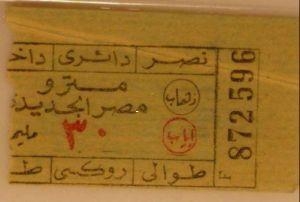 نصر | دائرى | داخ
مترو
ذهاب
مصر الجديدة
٣٠ مليم
إياب
طوالى | روكسى | ط
872596